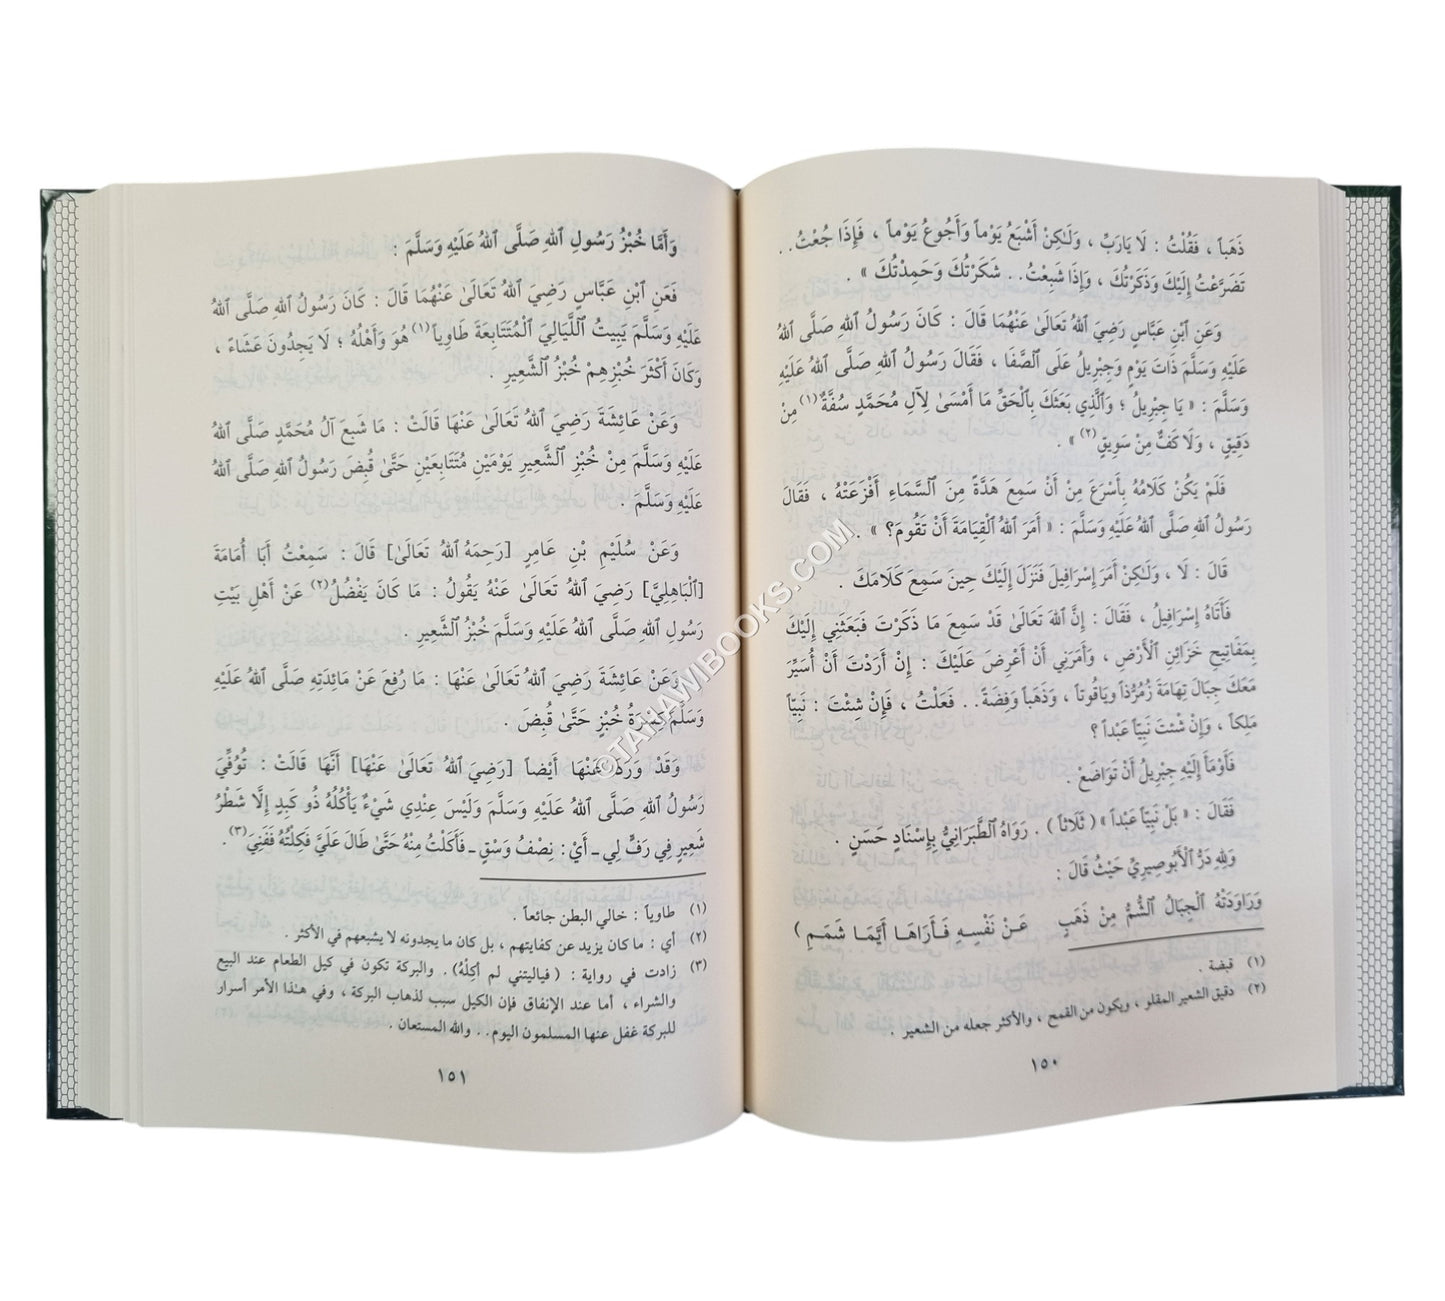 ذَهَباً ، فَقُلْتُ : لَا يَارَبِّ ، وَلَـٰكِنْ أَشْبَعُ يَوْماً وَأَجُوعُ يَوْماً ، فَإِذَا جُعْتُ . .
تَضَرَّعْتُ إِلَيْكَ وَذَكَرْتُكَ ، وَإِذَا شَبِعْتُ . . شَكَرْتُكَ وَحَمِدْتُكَ » .
وَعَنِ ٱبْنِ عَبَّاسٍ رَضِيَ ٱللهُ تَعَالَىٰ عَنْهُمَا قَالَ : كَانَ رَسُولُ ٱللهِ صَلَّى ٱللهُ
عَلَيْهِ وَسَلَّمَ ذَاتَ يَوْمٍ وَجِبْرِيلُ عَلَى ٱلصَّفَا ، فَقَالَ رَسُولُ ٱللهِ صَلَّى ٱللهُ عَلَيْهِ
وَسَلَّمَ : « يَا جِبْرِيلُ ؛ وَٱلَّذِي بَعَثَكَ بِٱلْحَقِّ مَا أَمْسَىٰ لِآلِ مُحَمَّدٍ سُفَّةٌ (١) مِنْ
دَقِيقٍ ، وَلَا كَفٌّ مِنْ سَوِيقٍ (٢) » .
فَلَمْ يَكُنْ كَلَامُهُ بِأَسْرَعَ مِنْ أَنْ سَمِعَ هَدَّةً مِنَ ٱلسَّمَاءِ أَفْزَعَتْهُ ، فَقَالَ
رَسُولُ ٱللهِ صَلَّى ٱللهُ عَلَيْهِ وَسَلَّمَ : « أَمَرَ ٱللهُ ٱلْقِيَامَةَ أَنْ تَقُومَ؟ » .
قَالَ : لَا ، وَلَـٰكِنْ أَمَرَ إِسْرَافِيلَ فَنَزَلَ إِلَيْكَ حِينَ سَمِعَ كَلَامَكَ .
فَأَتَاهُ إِسْرَافِيلُ ، فَقَالَ : إِنَّ ٱللهَ تَعَالَىٰ قَدْ سَمِعَ مَا ذَكَرْتَ فَبَعَثَنِي إِلَيْكَ
بِمَفَاتِيحِ خَزَائِنِ ٱلْأَرْضِ ، وَأَمَرَنِي أَنْ أَعْرِضَ عَلَيْكَ : إِنْ أَرَدْتَ أَنْ أُسَيِّرَ
مَعَكَ جِبَالَ تِهَامَةَ زُمُرُّذاً وَيَاقُوتاً ، وَذَهَباً وَفِضَةً . . فَعَلْتُ ، فَإِنْ شِئْتَ : نَبِيّاً
مَلِكاً ، وَإِنْ شئتَ نَبِيّاً عَبْداً ؟
فَأَوْمَأَ إِلَيْهِ جِبْرِيلُ أَنْ تَوَاضَعْ .
فَقَالَ : « بَلْ نَبِيّاً عَبْداً » ( ثَلَاثاً ) . رَوَاهُ ٱلطَّبَرَانِيُّ بِإِسْنَادٍ حَسَنٍ .
وَلِلهِ دَرُّ ٱلْأَبُوصِيرِيِّ حَيْثُ قَالَ :
وَرَاوَدَتْهُ ٱلْجِبَالُ ٱلشُّمُّ مِنْ ذَهَبٍ عَـنْ نَفْسِـهِ فَـأَرَاهَـا أَيَّمَـا شَمَـمِ )
(١) قبضة .
(٢) دقيق الشعير المقلو ، ويكون من القمح ، والأكثر جعله من الشعير .
١٥٠
وَأَمَّا خُبْزُ رَسُولِ ٱللهِ صَلَّى ٱللهُ عَلَيْهِ وَسَلَّمَ :
فَعَنِ ٱبْنِ عَبَّاسٍ رَضِيَ ٱللهُ تَعَالَىٰ عَنْهُمَا قَالَ : كَانَ رَسُولُ ٱللهِ صَلَّى ٱللهُ
عَلَيْهِ وَسَلَّمَ يَبِيتُ ٱللَّيَالِيَ ٱلْمُتَتَابِعَةَ طَاوِياً (١) هُوَ وَأَهْلُهُ ؛ لَا يَجِدُونَ عَشَاءً ،
وَكَانَ أَكْثَرَ خُبْزِهِمْ خُبْزُ ٱلشَّعِيرِ .
وَعَنْ عَائِشَةَ رَضِيَ ٱللهُ تَعَالَىٰ عَنْهَا قَالَتْ : مَا شَبِعَ آلُ مُحَمَّدٍ صَلَّى ٱللهُ
عَلَيْهِ وَسَلَّمَ مِنْ خُبْزِ ٱلشَّعِيرِ يَوْمَيْنِ مُتَتَابِعَيْنِ حَتَّىٰ قُبِضَ رَسُولُ ٱللهِ صَلَّى ٱللهُ
عَلَيْهِ وَسَلَّمَ .
وَعَنْ سُلَيْمِ بْنِ عَامِرٍ [رَحِمَهُ ٱللهُ تَعَالَىٰ] قَالَ : سَمِعْتُ أَبَا أُمَامَةَ
[ٱلْبَاهِلِيَّ] رَضِيَ ٱللهُ تَعَالَىٰ عَنْهُ يَقُولُ : مَا كَانَ يَفْضُلُ (٢) عَنْ أَهْلِ بَيْتِ
رَسُولِ ٱللهِ صَلَّى ٱللهُ عَلَيْهِ وَسَلَّمَ خُبْزُ ٱلشَّعِيرِ .
وَعَنْ عَائِشَةَ رَضِيَ ٱللهُ تَعَالَىٰ عَنْهَا : مَا رُفِعَ عَنْ مَائِدَتِهِ صَلَّى ٱللهُ عَلَيْهِ
وَسَلَّمَ كِسْرَةُ خُبْزٍ حَتَّىٰ قُبِضَ .
وَقَدْ وَرَدَ عَنْهَا أَيْضاً [رَضِيَ ٱللهُ تَعَالَىٰ عَنْهَا] أَنَّهَا قَالَتْ : تُوُفِّيَ
رَسُولُ ٱللهِ صَلَّى ٱللهُ عَلَيْهِ وَسَلَّمَ وَلَيْسَ عِنْدِي شَيْءٌ يَأْكُلُهُ ذُو كَبِدٍ إِلَّا شَطْرُ
شَعِيرٍ فِي رَفٍّ لِي ـ أَيْ : نِصْفُ وَسْقٍ ـ فَأَكَلْتُ مِنْهُ حَتَّىٰ طَالَ عَلَيَّ فَكِلْتُهُ فَفَنِيَ (٣) .
(١) طاوياً : خالي البطن جائعاً .
(٢) أي : ما كان يزيد عن كفايتهم ، بل كان ما يجدونه لا يشبعهم في الأكثر .
(٣) زادت في رواية : ( فياليتني لم أكِلْهُ) . والبركة تكون في كيل الطعام عند البيع
والشراء ، أما عند الإنفاق فإن الكيل سبب لذهاب البركة ، وفي هـٰذا الأمر أسرار
للبركة غفل عنها المسلمون اليوم . . والله المستعان .
١٥١
©TAHAWIBOOKS.COM